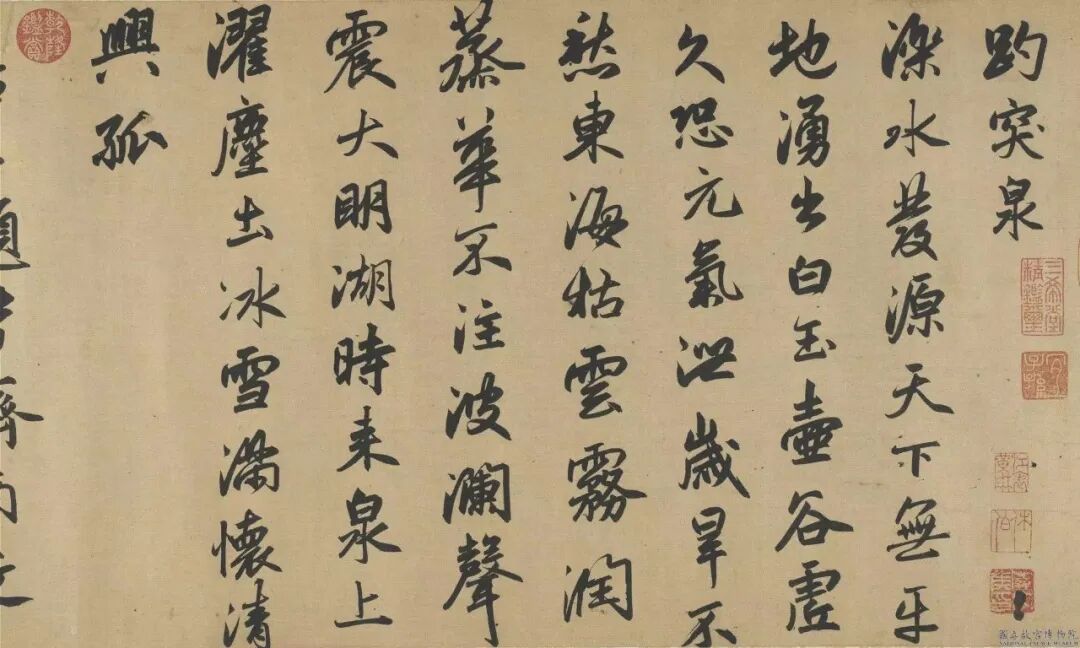 趵突泉
濼水發源天下無平
地湧出白玉壺谷虛
久恐元氣泄歲旱不
愁東海枯雲霧潤
蒸華不注波瀾聲
震大明湖時來泉上
濯塵土冰雪滿懷清
興孤
三希堂精鑑璽
宜子孫
乾隆鑑賞
國立故宮博物院
NATIONAL PALACE MUSEUM